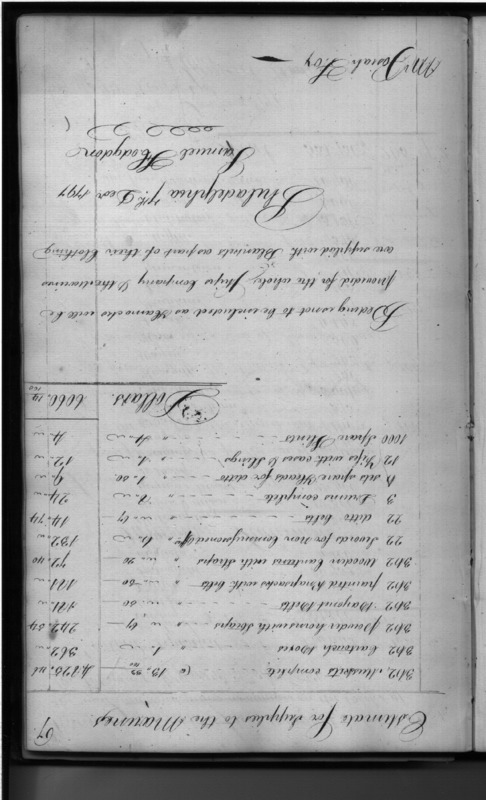 Estimate for Supplies to the Marines
362 Muskets complete @ 13. 33 4825. 51
362 Cartouch Boxes " 1. " 362 "
362 Powder horns with Straps " " 67 242. 54
362 Bayonet Belts " " 50 181 "
362 painted Knapsacks with belts " " 50 181 "
362 Wooden Canteens with Straps " " 20 72. 40
22 Swords for Non Commissioned Offrs " 6. " 132. "
22 ditto belts " " 67 14. 74
3 Drums complete " 8. " 24 "
6 sets spare Heads for ditto " 1. 50 9 "
12 Fifes with cases & Slings " 1. " 12. "
1000 Spare Flints 4 "
Dollars 6060. 19
Beding is not to be included as Hammocks will be
provided for the whole Ships Company & the Marines
are supplied with Blankets as part of their Clothing
Philadelphia 7th. Decr 1797
Samuel Hodgdon
Mr Josiah Fox